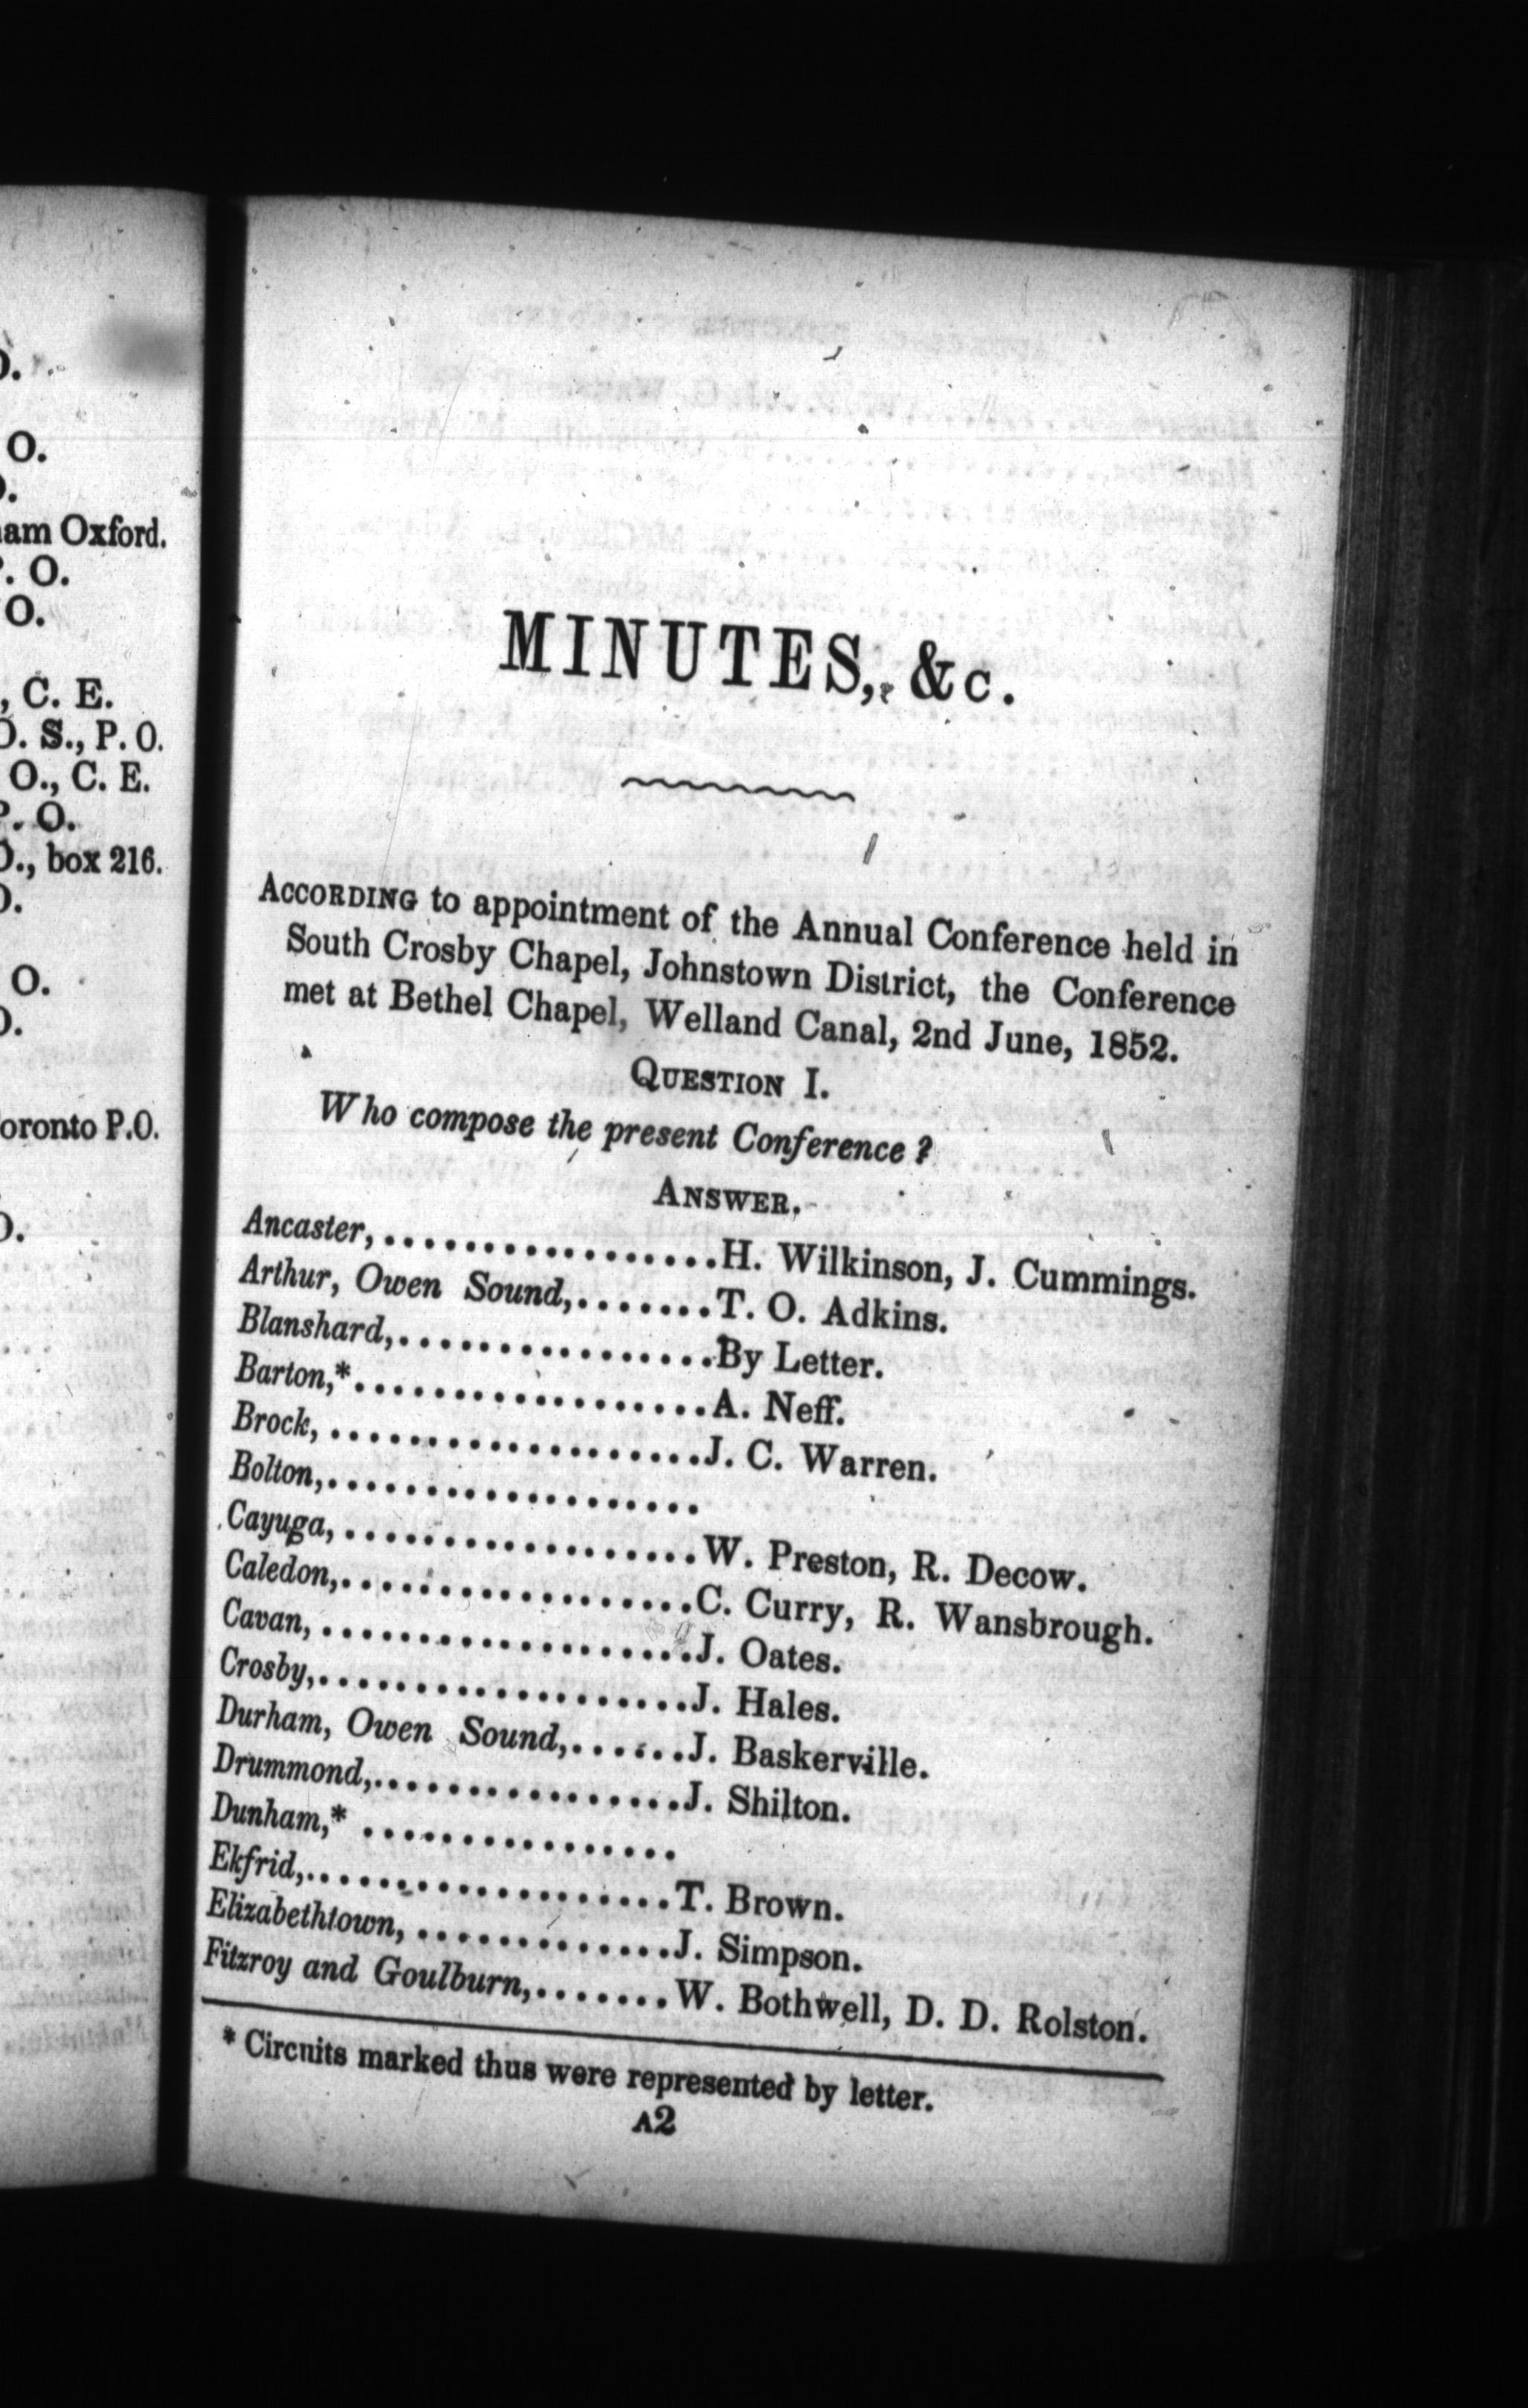 O.
am Oxford.
. O.
O.
, C. E.
. S., P. O.
O., C. E.
. O.
., box 216.
O.
oronto P.O.
MINUTES, &c.
ACCORDING to appointment of the Annual Conference held in
South Crosby Chapel, Johnstown District, the Conference
met at Bethel Chapel, Welland Canal, 2nd June, 1852.
QUESTION I.
Who compose the present Conference?
ANSWER.
Ancaster,.................H. Wilkinson, J. Cummings.
Arthur, Owen Sound,.......T. O. Adkins.
Blanshard,................By Letter.
Barton,*..................A. Neff.
Brock,...................J. C. Warren.
Bolton,...................
Cayuga,..................W. Preston, R. Decow.
Caledon,..................C. Curry, R. Wansbrough.
Cavan,...................J. Oates.
Crosby,...................J. Hales.
Durham, Owen Sound,......J. Baskerville.
Drummond,................J. Shilton.
Dunham,* ................
Ekfrid,...................T. Brown.
Elizabethtown,.............J. Simpson.
Fitzroy and Goulburn,.......W. Bothwell, D. D. Rolston.
* Circuits marked thus were represented by letter.
A2